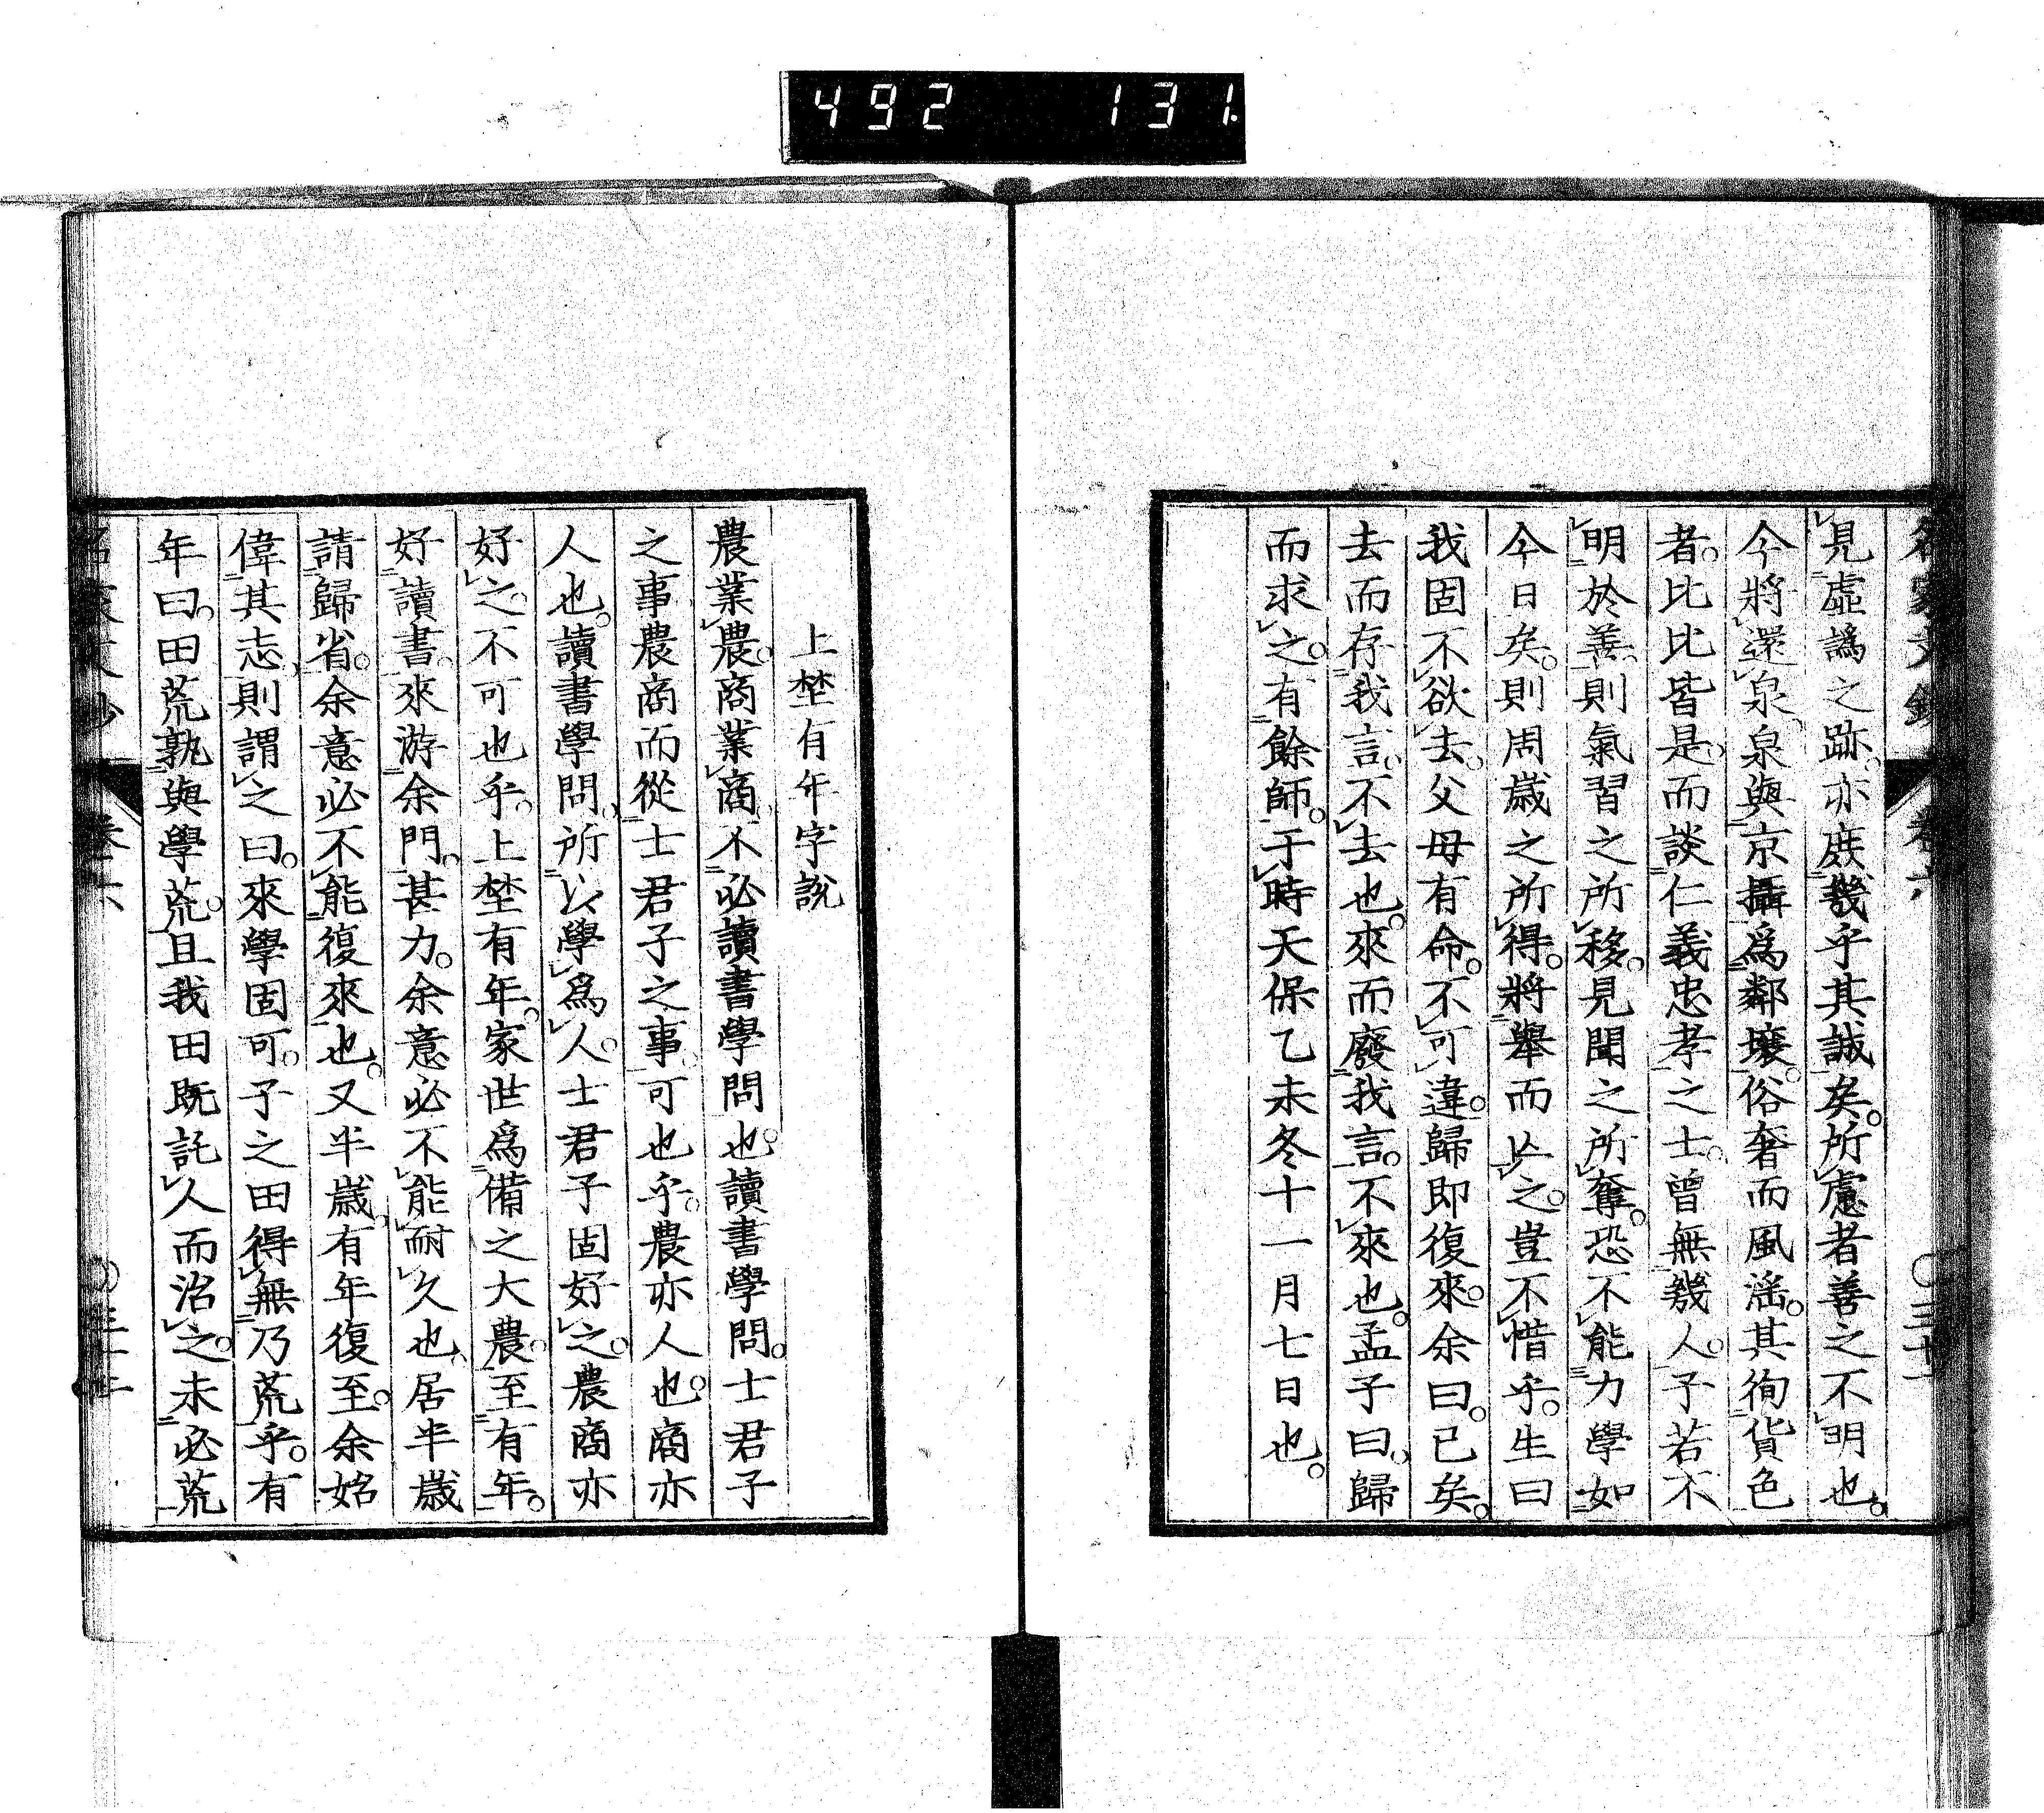 492 131
見虛譌之跡。亦庶幾乎其誠矣。所慮者善之不明也。
今將還泉。泉與京攝爲鄰壤。俗奢而風滛。其徇貨色
者。比比皆是。而談仁義忠孝之士。曾無幾人。子若不
明於善。則氣習之所移。見聞之所奪。恐不能力學如
今日矣。則周歲之所得。將舉而亾之。豈不惜乎。生曰
我固不欲去。父母有命。不可違。歸即復來。余曰。已矣。
去而存我言。不去也。來而廢我言。不來也。孟子曰。歸
而求之。有餘師。于時天保乙未冬十一月七日也。
上埜有年字說
農業農。商業商。不必讀書學問也。讀書學問。士君子
之事。農商而從士君子之事。可也乎。農亦人也。商亦
人也。讀書學問。所以學爲人。士君子固好之。農商亦
好之。不可也乎。上埜有年。家世爲備之大農。至有年。
好讀書。來游余門。甚力。余意必不能耐久也。居半歲
請歸省。余意必不能復來也。又半歲。有年復至。余始
偉其志。則謂之曰。來學固可。子之田得無乃荒乎。有
年曰。田荒孰與學荒。且我田既託人而治之。未必荒
卷六